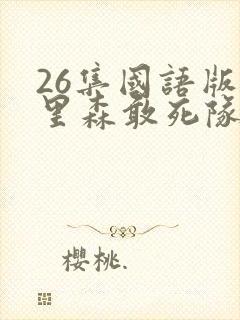 26集國語版
里森敢死隊
櫻桃.